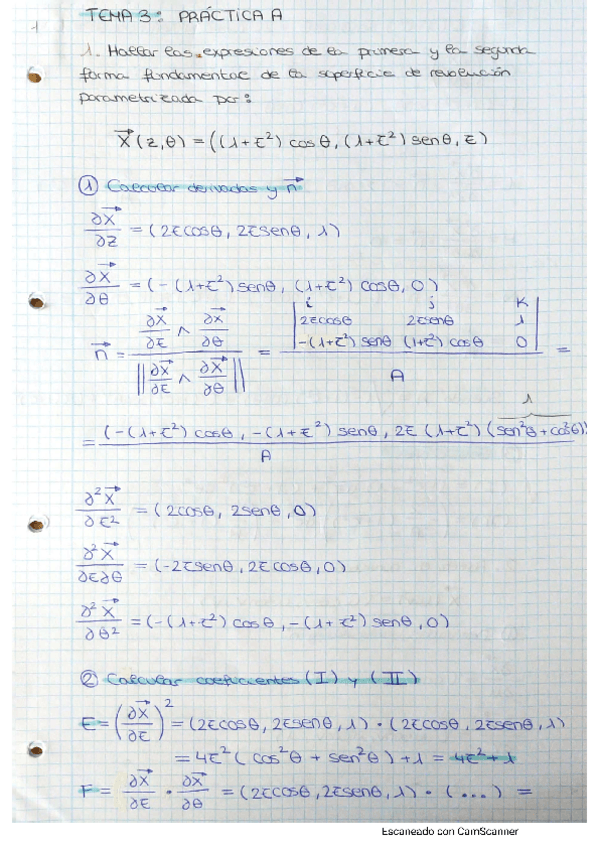 1
TEMA 3: PRÁCTICA A
1. Hallar las expresiones de la primera y la segunda
forma fundamental de la superficie de revolución
parametrizada por:
X⃗(z,θ) = ((1+z²) cosθ, (1+z²) senθ, z)
① Calcular derivadas y n⃗
∂X⃗/∂z = (2zcosθ, 2zsenθ, 1)
∂X⃗/∂θ = (-(1+z²)senθ, (1+z²) cosθ, 0)
n⃗ = (∂X⃗/∂z ∧ ∂X⃗/∂θ) / ||∂X⃗/∂z ∧ ∂X⃗/∂θ|| = | i j k ; 2zcosθ 2zsenθ 1 ; -(1+z²) senθ (1+z²) cosθ 0 | / A =
1
= (-(1+z²) cosθ, -(1+z²) senθ, 2z (1+z²) (sen²θ + cos²θ)) / A
∂²X⃗/∂z² = (2cosθ, 2senθ, 0)
∂²X⃗/∂z∂θ = (-2zsenθ, 2zcosθ, 0)
∂²X⃗/∂θ² = (-(1+z²) cosθ, -(1+z²) senθ, 0)
② Calcular coeficientes (I) y (II)
E = (∂X⃗/∂z)² = (2zcosθ, 2zsenθ, 1) · (2zcosθ, 2zsenθ, 1)
= 4z² (cos²θ + sen²θ) + 1 = 4z² + 1
F = ∂X⃗/∂z · ∂X⃗/∂θ = (2zcosθ, 2zsenθ, 1) · (...) =
Escaneado con CamScanner